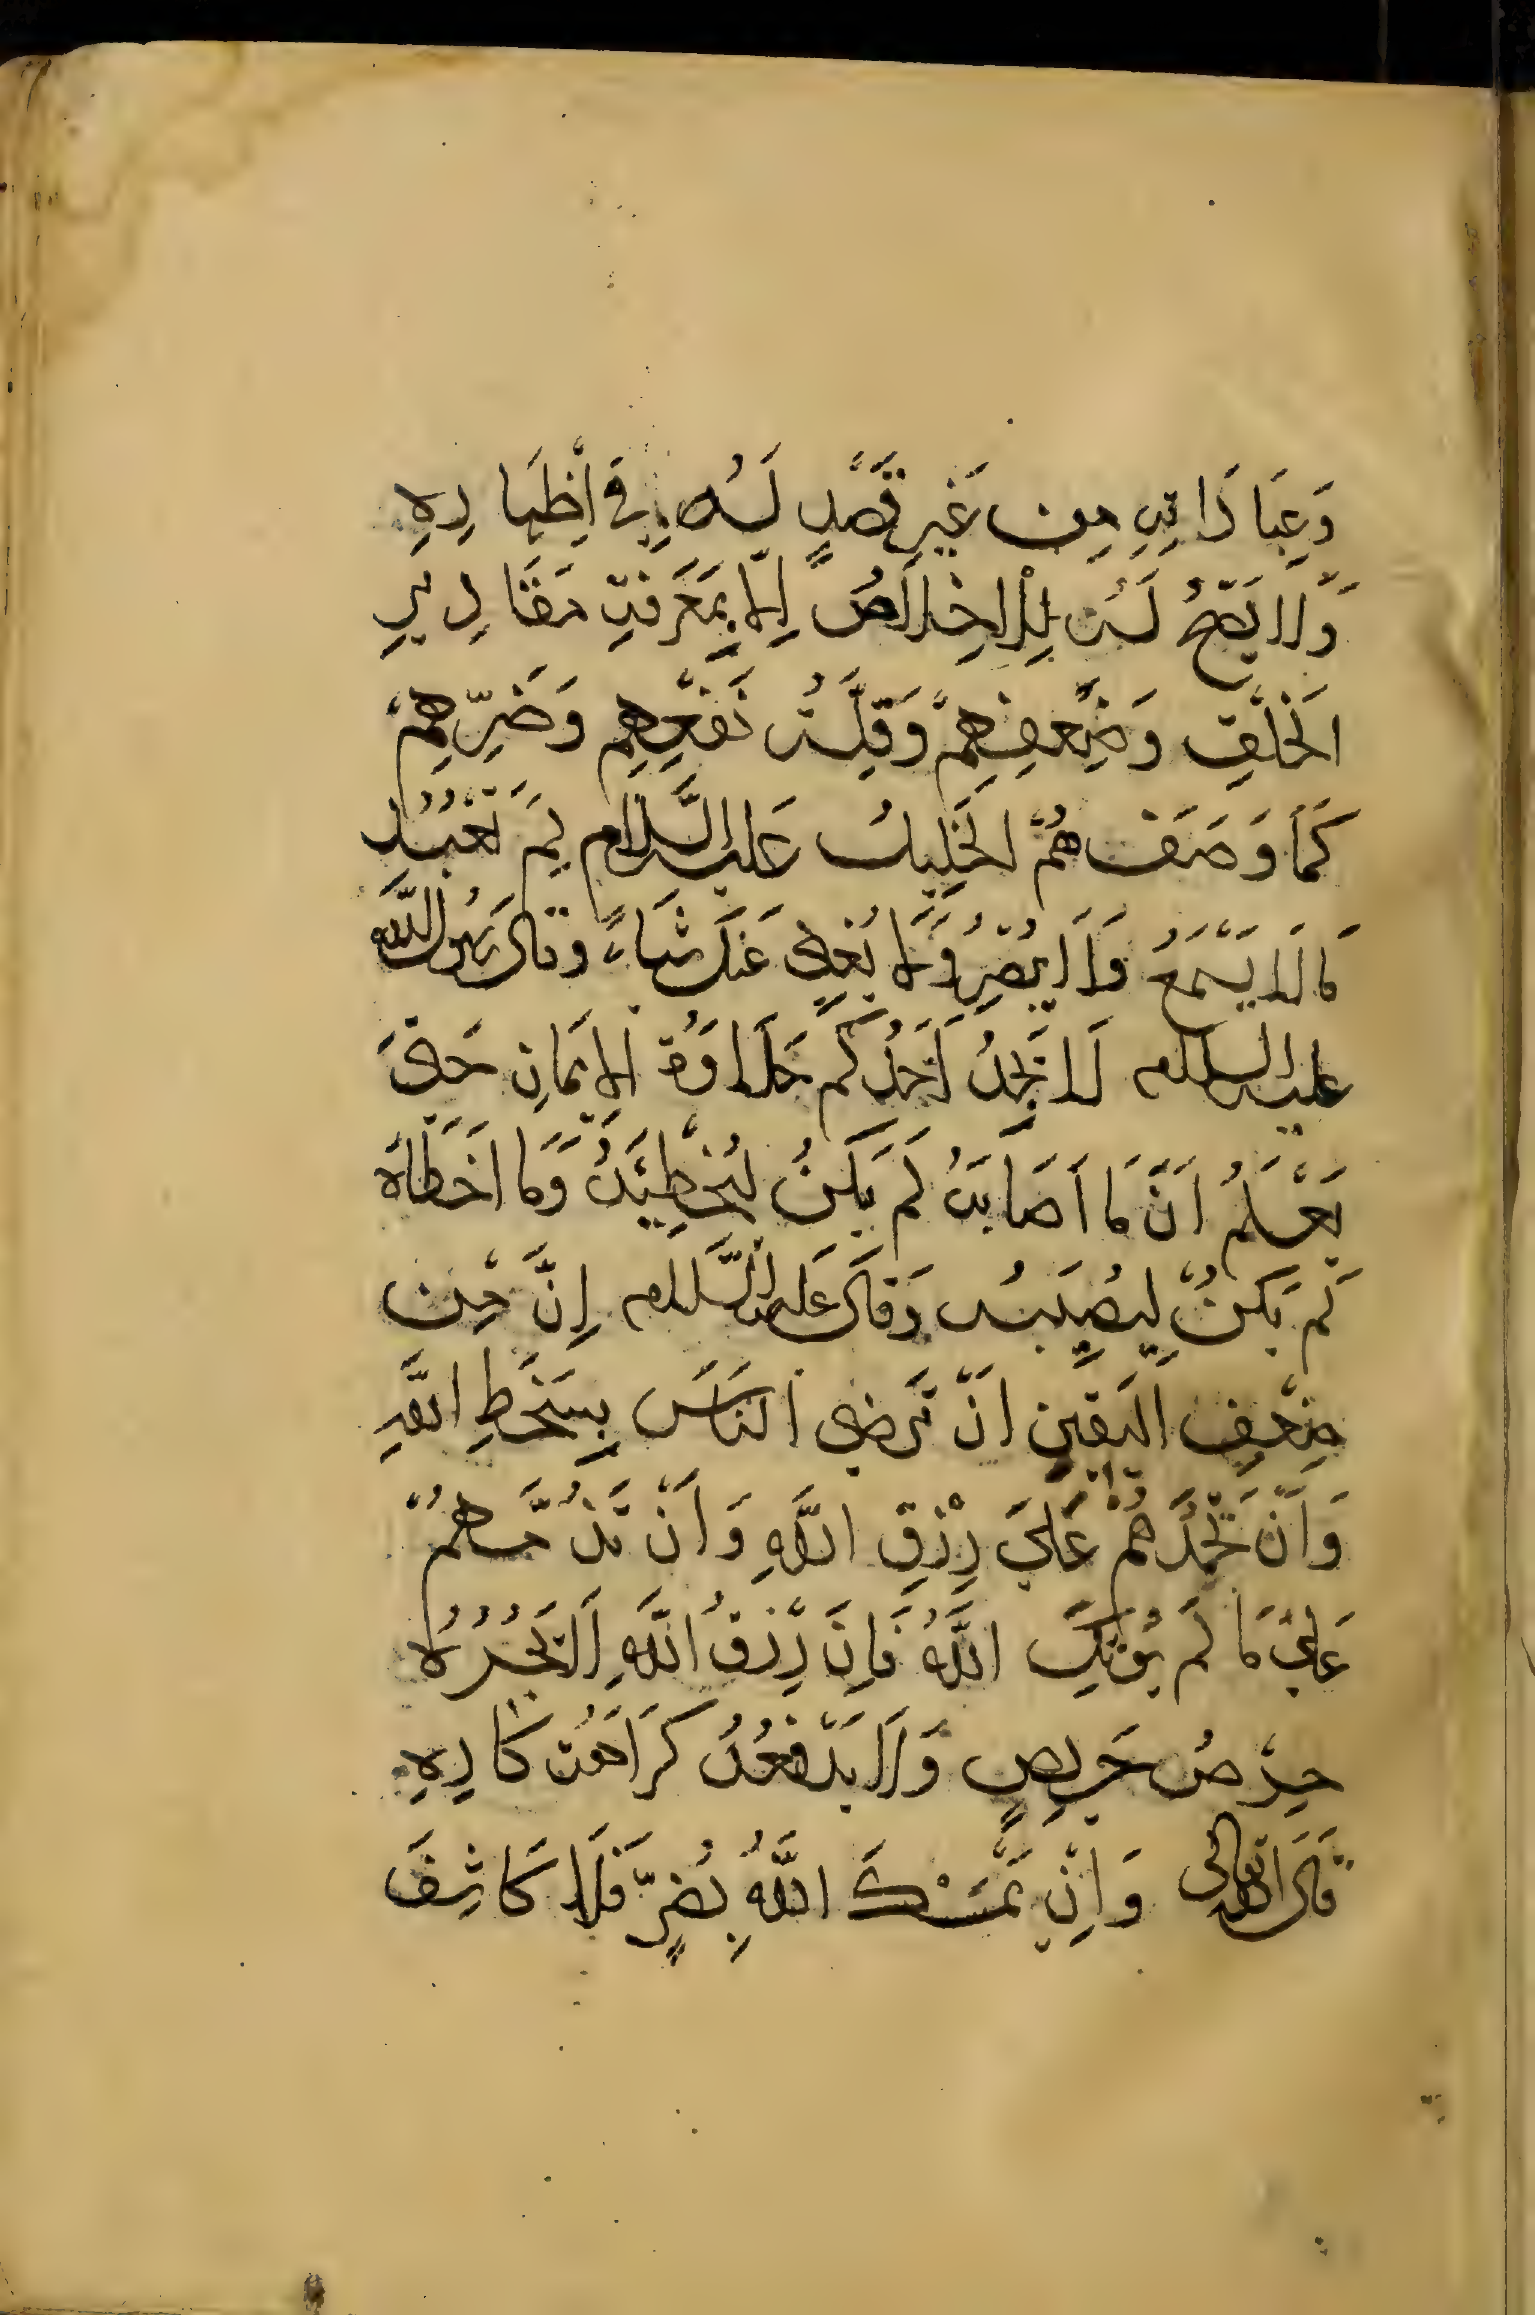 وَعِبَادَاتِهِ مِن غَيْرِ قَصْدٍ لَهُ فِي اِظْهَارِهِ
وَلَا يَصِحُّ لَهُ اِلْاِخْلَاصُ اِلَّا بِمَعْرِفَةِ مَقَادِيرِ
الْخَلْقِ وَضَعْفِهِمْ وَقِلَّةِ نَفْعِهِمْ وَضَرِّهِمْ
كَمَا وَصَفَهُمْ الْخَلِيلُ عَلَيْهِ السَّلَام لِمَ تَعْبُدُ
مَا لَا يَسْمَعُ وَلَا يُبْصِرُ وَلَا يُغْنِي عَنكَ شَيْـًٔا وقال رسول اللَّه
عليه السلام لَا يَجِدُ اَحَدُكُم حَلَاوَةَ الْاِيمَانِ حَتَّى
يَعْلَمُ اَنَّ مَا اَصَابَهُ لَم يَكُنْ لِيُخْطِئَهُ وَمَا اَخْطَاَهُ
لَم يَكُنْ لِيُصِيبَهُ وَقَالَ عَلَيْهِ السَّلام اِنَّ مِن
ضَعْفِ الْيَقِينِ اَنْ تُرْضِي النَّاسَ بِسَخَطِ اللَّهِ
وَاَنْ تَحْمَدَهُمْ عَلَى رِزْقِ اللَّهِ وَاَنْ تَذُمَّهُمْ
عَلَى مَا لَم يُؤْتِكَ اللَّهُ فَاِنَّ رِزْقَ اللَّهِ لَا يَجُرُّهُ
حِرْصُ حَرِيصٍ وَلَا يَدْفَعُهُ كَرَاهَةُ كَارِهٍ
قَالَ اللّٰه تعالى وَاِنْ يَمْسَسْكَ اللَّهُ بِضُرٍّ فَلَا كَاشِفَ